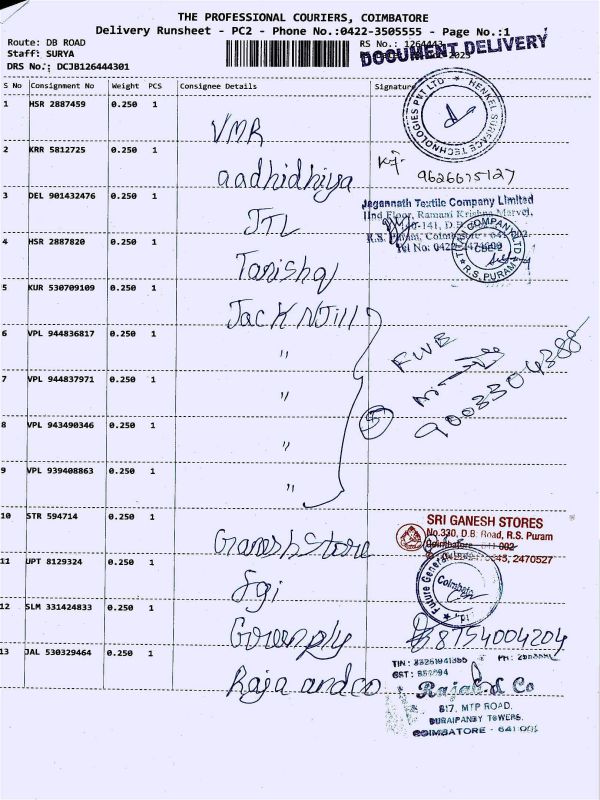 THE PROFESSIONAL COURIERS, COIMBATORE
Delivery Runsheet - PC2 - Phone No.:0422-3505555 - Page No.:1
Route: DB ROAD
RS No.:
Staff: SURYA
DOCUMENT DELIVERY
DRS No.: DCJB126444301
S No Consignment No Weight PCS Consignee Details Signature
1 HSR 2887459 0.250 1 VMR
HENKEL SURFACE TECHNOLOGIES PVT LTD
2 KRR 5812725 0.250 1 aadhidhiya
9626675127
3 DEL 901432476 0.250 1 JTL
Jagannath Textile Company Limited
IInd Floor, Ramani Krishna Marvel,
R.S. Puram, Coimbatore - 641 002.
Tel No: 0422
4 HSR 2887820 0.250 1 Tanishq
TITAN COMPANY LTD
CBE
R.S. PURAM
5 KUR 530709109 0.250 1 Jack N Jill
6 VPL 944836817 0.250 1 "
FWB
7 VPL 944837971 0.250 1 "
9003304388
8 VPL 943490346 0.250 1 "
5
9 VPL 939408863 0.250 1 "
10 STR 594714 0.250 1 Ganesh Store
SRI GANESH STORES
No.330, D.B. Road, R.S. Puram
Coimbatore - 641 002
2470527
11 JPT 8129324 0.250 1 Fgi
Future Generali
Coimbatore
12 SLM 331424833 0.250 1 Greenply
8754004204
13 JAL 530329464 0.250 1 Raja and co
Rajah & Co
817, MTP ROAD,
DURAIPANDY TOWERS,
COIMBATORE - 641 001